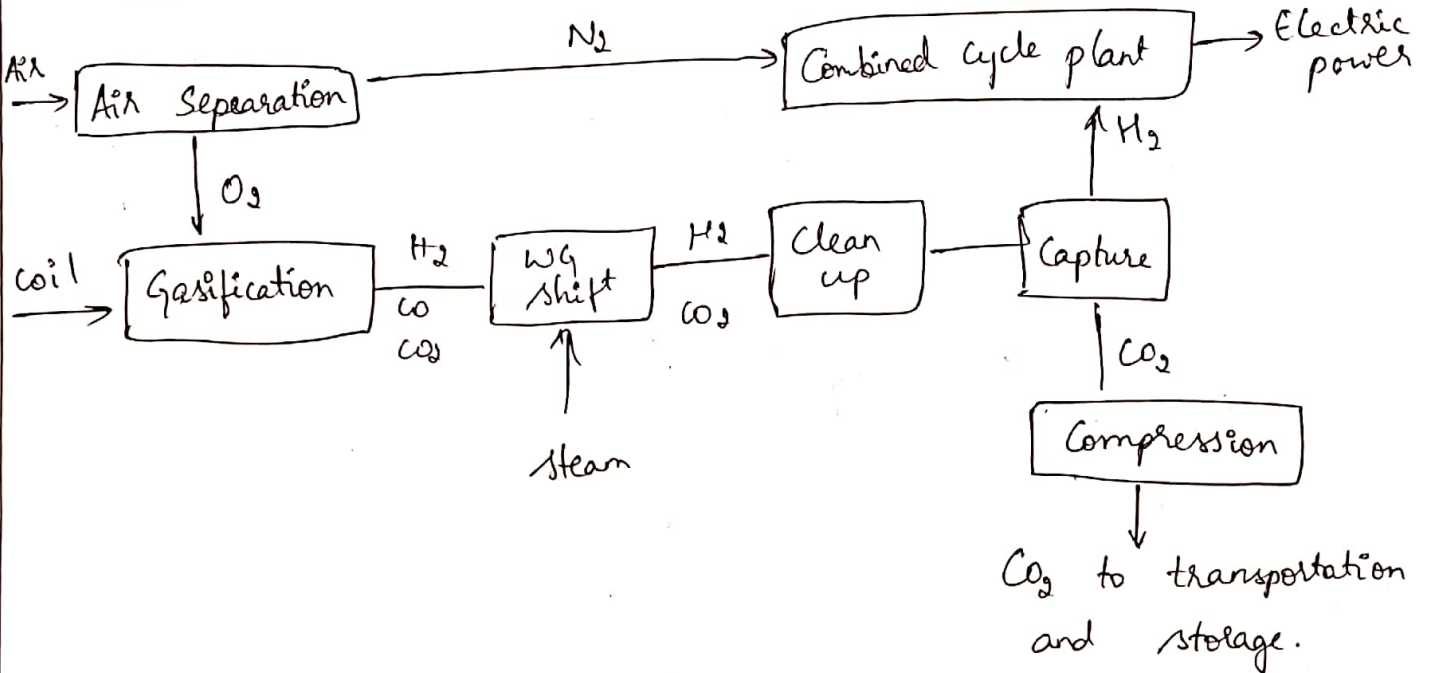 Air
Air Sepearation
N2
Combined Cycle plant
Electric
power
O2
H2
Coil
Gasification
H2
CO
CO2
WG
shift
H2
CO2
Clean
up
Capture
steam
CO2
Compression
CO2 to transportation
and storage.